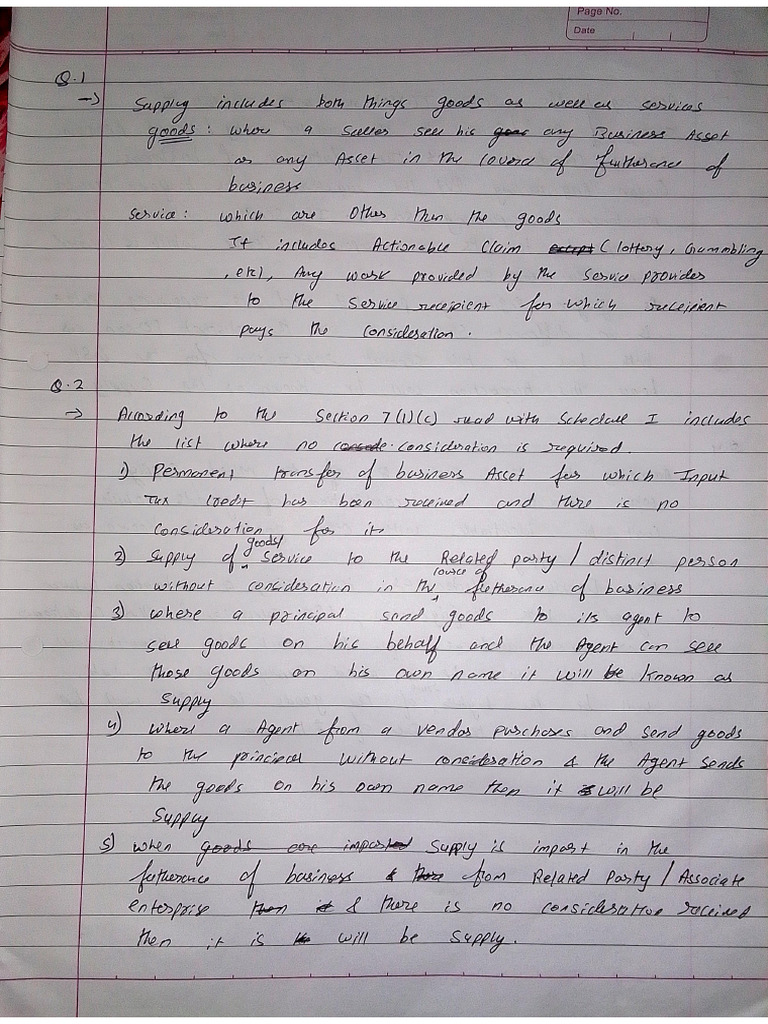 Page No.
Date
Q.1
→ Supply includes both things goods as well as services
goods : where a seller sell his any Business Asset
or any Asset in the course of furtherance of
business
Service : which are Other then the goods
It includes Actionable Claim except (lottery, Grammbling
, etc), Any work provided by the Service provides
to the service receipient for which receipient
pays the consideration.
Q.2
→ According to the Section 7(1)(c) read with Schedule I includes
the list where no consideration is required.
1) Permanent transfer of business Asset for which Input
Tax Credit has been received and there is no
consideration for it
2) Supply of goods/ Service to the Related party / distinct person
without consideration in the course of futherance of business
3) where a principal send goods to its agent to
sell goods on his behalf and the Agent can sell
those goods on his own name it will be known as
Supply
4) where a Agent from a vendor purchases and send goods
to the principal without consideration & the Agent sends
the goods on his own name then it will be
Supply
5) when goods are imported Supply is import in the
futherance of business & from Related Party / Associate
enterprise then & there is no consideration received
then it is will be Supply.